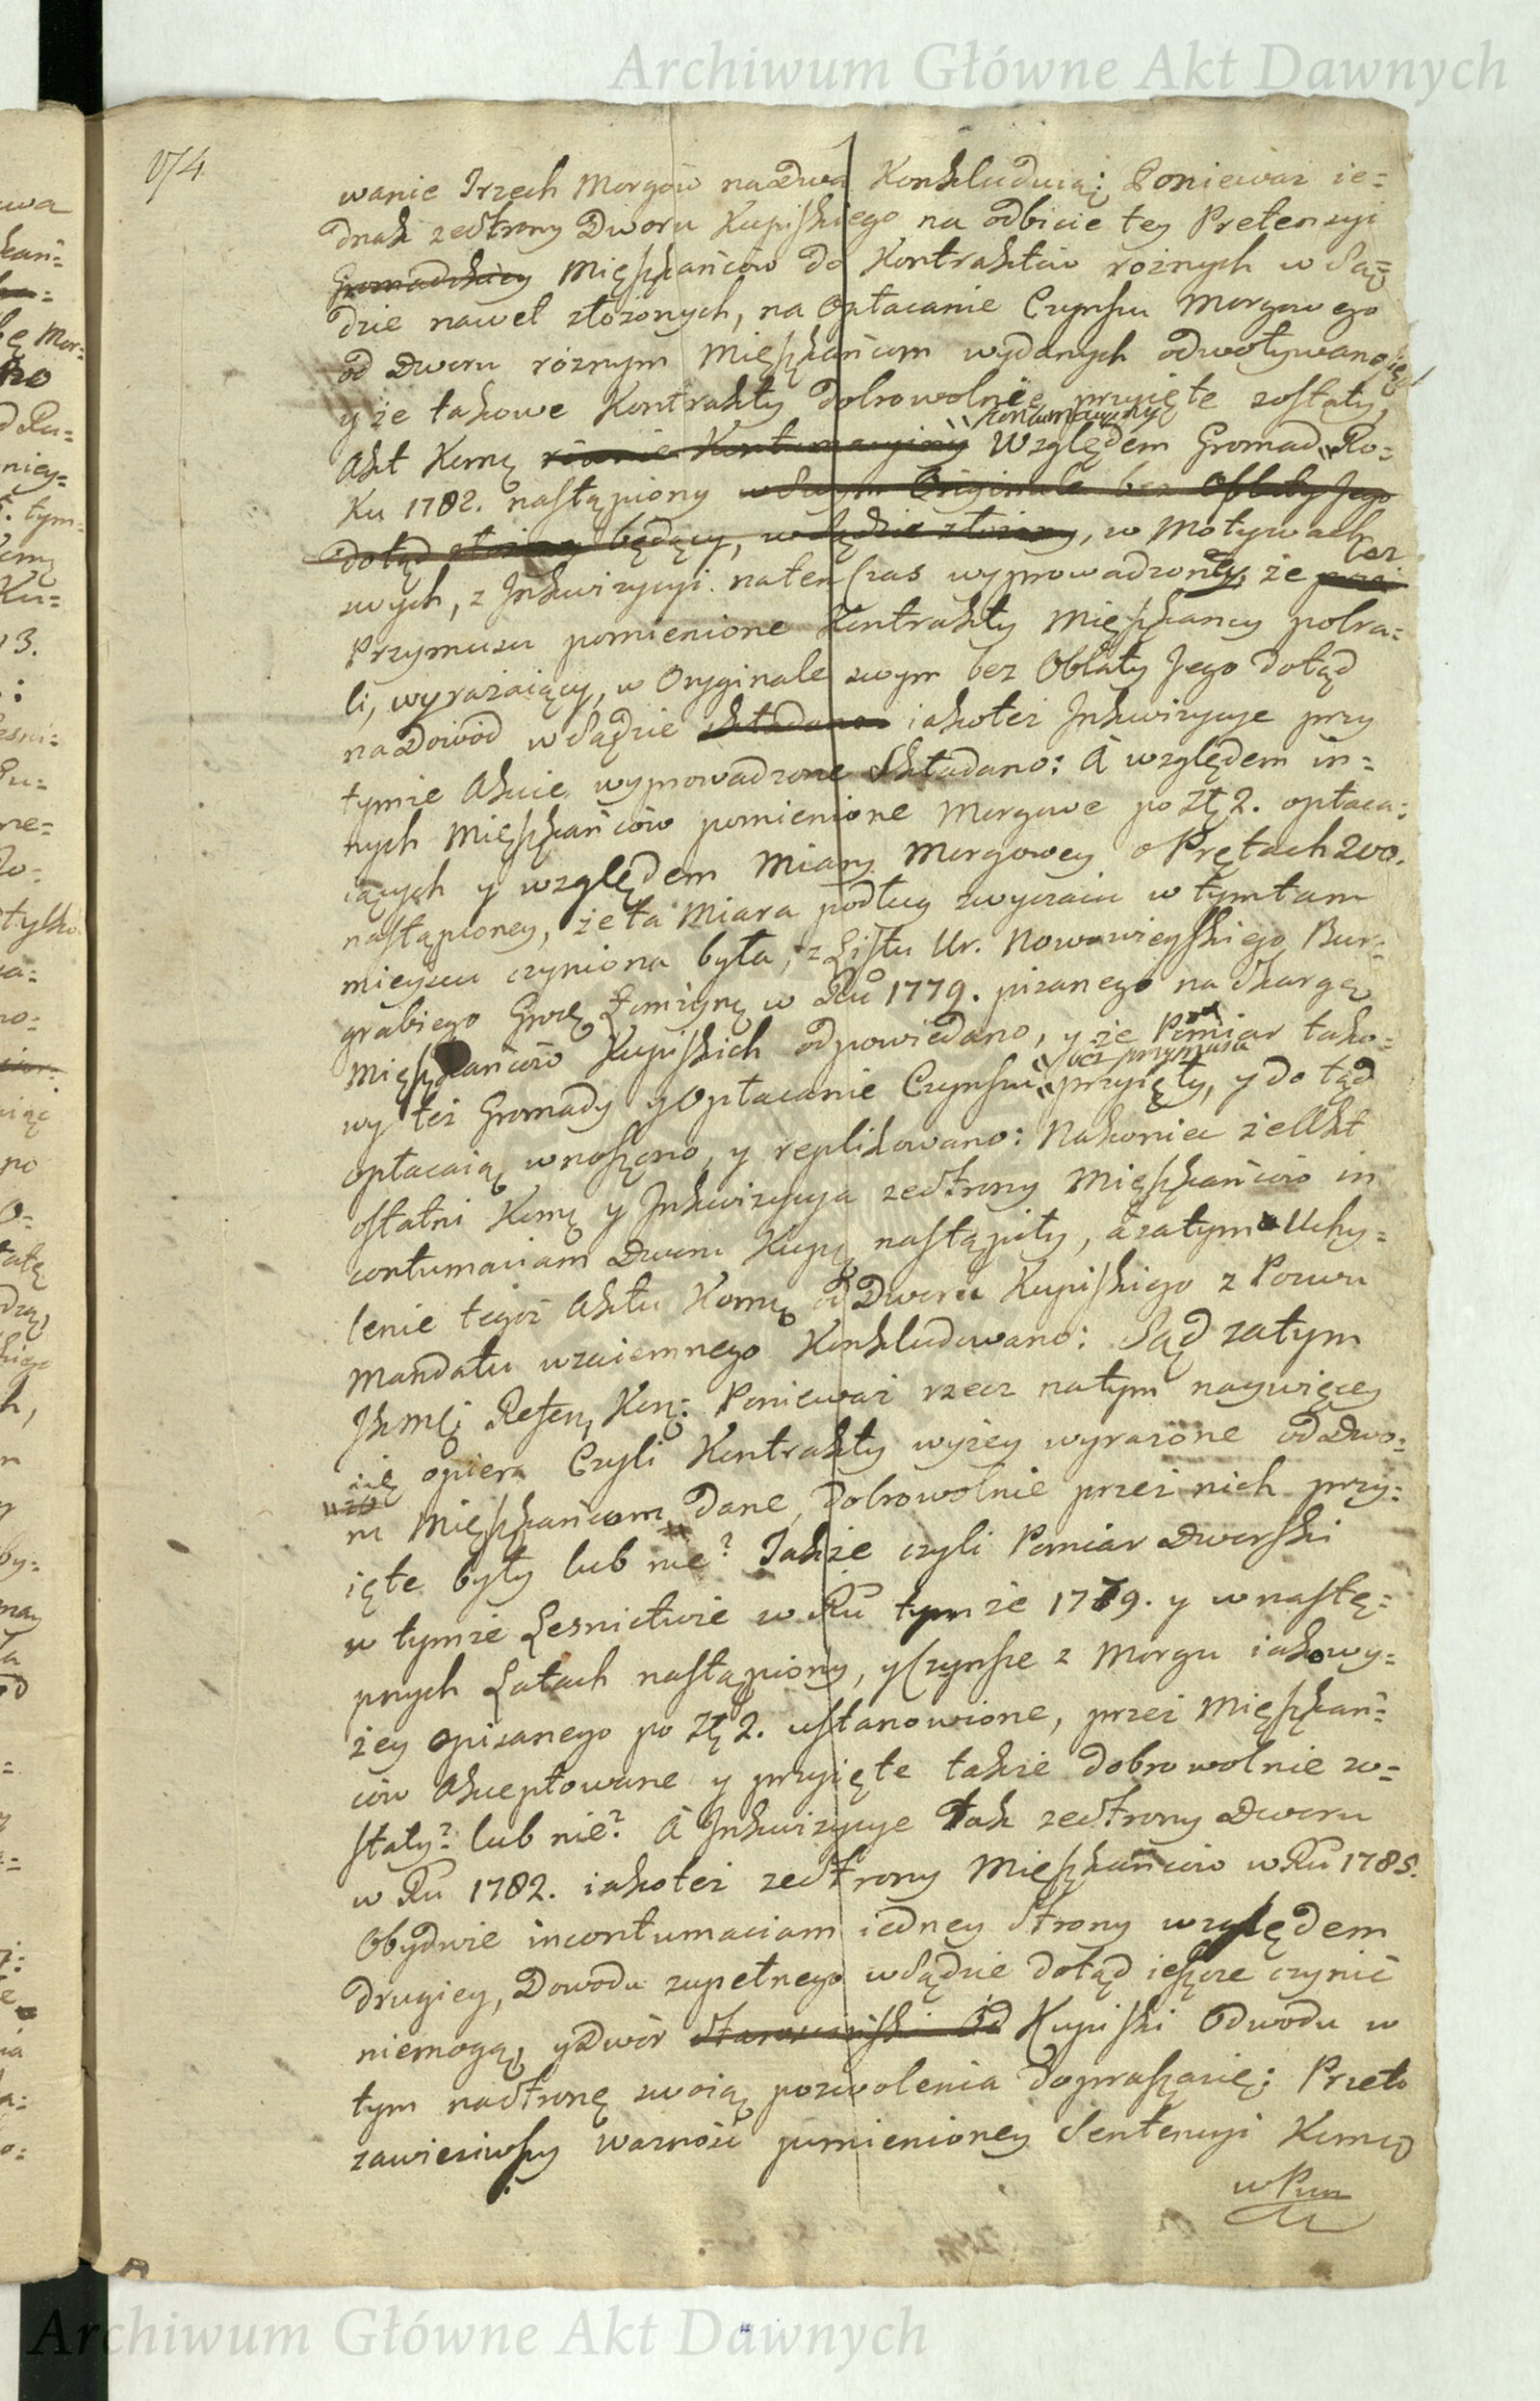 Archiwum Główne Akt Dawnych
wanie Trzech Morgów na Dwa Konkluduią; Poniewaz ie=
dnak ze Strony Dworu Kupiskiego na odbicie tey Pretensyi
Gromadzkiey Mięszkańców do Kontraktów roznych w Są=
dzie nawet złozonych, na Opłacanie Czynszu Morgowego
od Dworu roznym Mięszkańcom wydanych odwoływano się
y że takowe Kontrakty Dobrowolnie przyięte zostały,
kontumacyiny
Akt Komę równie Kontumacyiny Względem Gromad Ro=
Ku 1782. nastąpiony w Swym Originale bez Oblaty Jego
dotąd będący, w Sądzie złozony, w Motywach
swych, z Inkwizycyi naten Czas wyprowadzoney, że bez
Przymusu pomienione Kontrakty Mięszkancy pobra=
li, wyrazaiący, w Oryginale swym bez Oblaty Jego dotąd
na Dowód w Sądzie składano iakoteż Inkwizycye przy
tymże Akcie wyprowadzone Składano: A względem in=
nych Mięszkańców pomienione Morgowe po Zł 2. opłaca=
iących y względem Miary Morgowey o Prętach 200.
nastąpioney, że ta Miara podług zwyczaiu w tym tam
mieyscu czyniona była, z Listu Ur. Nowowieyskiego Bur=
grabiego Grodź Łomżynę w Rku 1779. pisanego na Skargę
Mięszkańców Kupiskich odpowiedano, y że Pomiar tako=
bez przymusu
wy też Gromady y Opłacanie Czynszu przyięły, y do tąd
opłacaią wnoszono, y replikowano: Nakoniec że Akt
ostatni Komę y Inkwizycya ze Strony Mięszkańców in
contumaciam Dworu Kupę nastąpiły, a zatym Uchy=
lenie tegoż Aktu Komę od Dworu Kupiskiego z Pozwu
Mandatu wzaiemnego Konkludowano: Sąd zatym
JkMci Refen, Konę: Poniewaz rzecz na tym naywięcey
się opiera Czyli Kontrakty wyżey wyrażone od Dwo=
ru Mięszkańcom Dane, Dobrowolnie przez nich przy=
ięte były lub nie? Także czyli Pomiar Dworski
w tymże Lesnictwie w Rku tymże 1779. y w nastę=
pnych Latach nastąpiony, y Czynsze z Morgu iakowy=
żey opisanego po Zł 2. ustanowione, przez Mięszkań=
ców Akceptowane y przyięte także Dobrowolnie zo=
stały? lub nie? A Inkwizycye tak ze Strony Dworu
w Rku 1782. iakoteż ze Strony Mięszkańców w Rku 1785.
Obydwie in contumaciam iedney Strony względem
drugiey, Dowodu zupełnego w Sądzie dotąd ieszcze czynić
niemogą, y Dwór Kupiski Odwodu w
tym na Stronę swoią pozwolenia Dopraszasię; Przeto
zawiesiwszy Wazność pomienioney Sentencyi Komę
Archiwum Główne Akt Dawnych